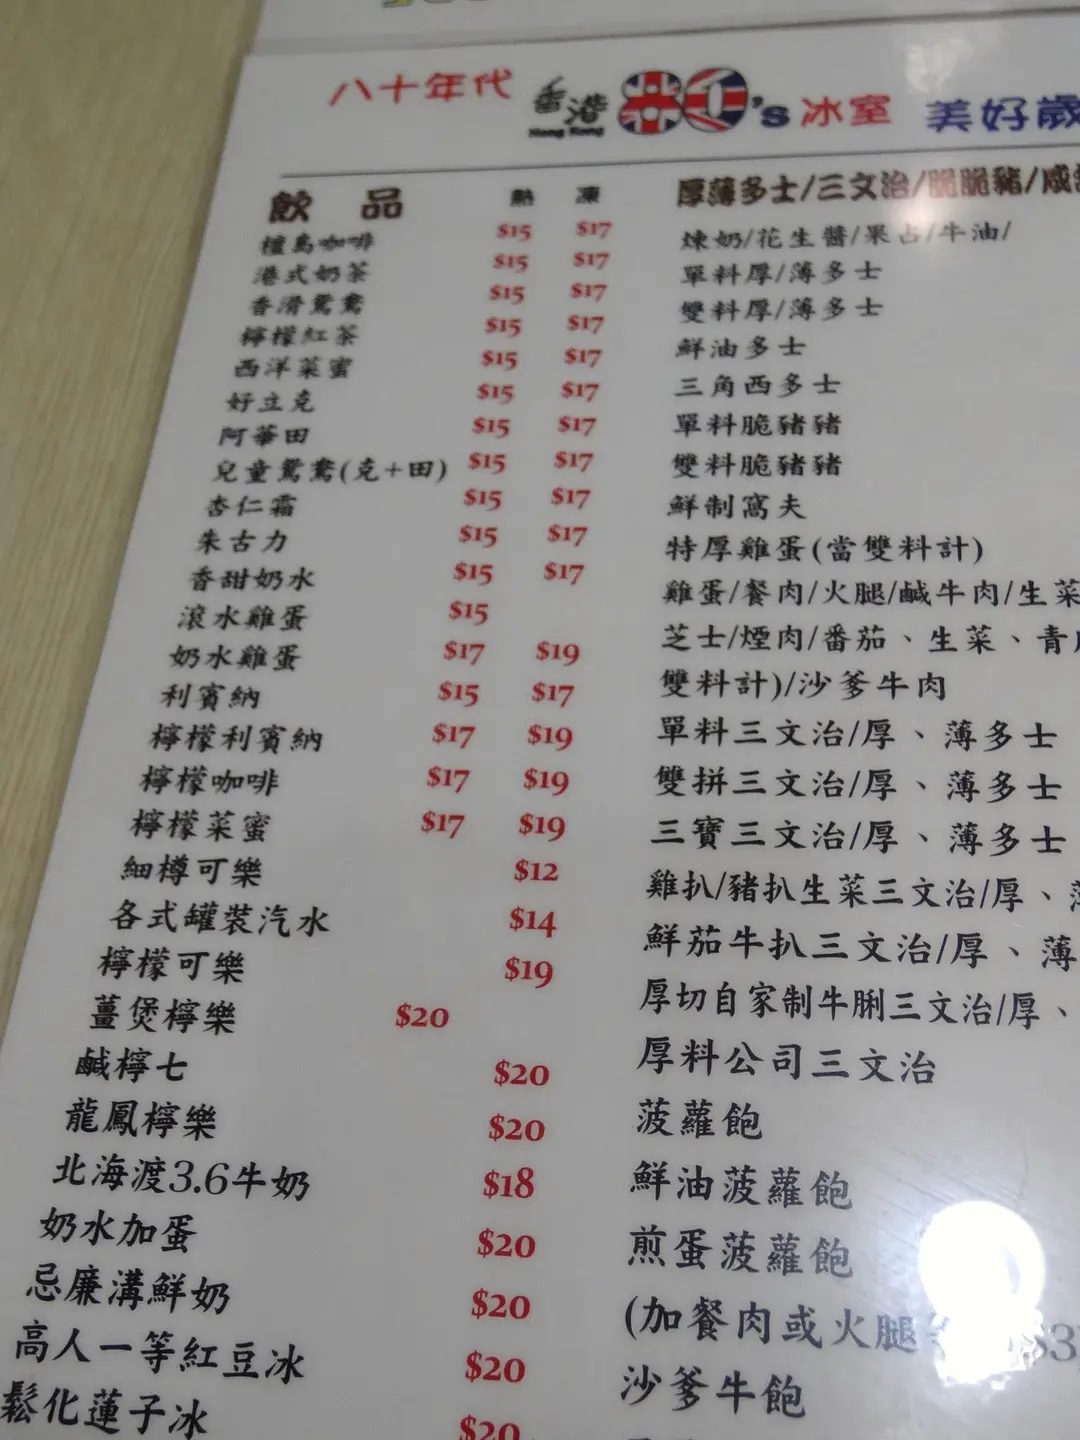 八十年代 香港 80's 冰室 美好歲
Hong Kong
飲品 熱 凍
檀島咖啡 $15 $17
港式奶茶 $15 $17
香滑鴛鴦 $15 $17
檸檬紅茶 $15 $17
西洋菜蜜 $15 $17
好立克 $15 $17
阿華田 $15 $17
兒童鴛鴦(克+田) $15 $17
杏仁霜 $15 $17
朱古力 $15 $17
香甜奶水 $15 $17
滾水雞蛋 $15
奶水雞蛋 $17 $19
利賓納 $15 $17
檸檬利賓納 $17 $19
檸檬咖啡 $17 $19
檸檬菜蜜 $17 $19
細樽可樂 $12
各式罐裝汽水 $14
檸檬可樂 $19
薑煲檸樂 $20
鹹檸七 $20
龍鳳檸樂 $20
北海渡3.6牛奶 $18
奶水加蛋 $20
忌廉溝鮮奶 $20
高人一等紅豆冰 $20
鬆化蓮子冰 $20
厚薄多士/三文治/脆脆豬/咸
煉奶/花生醬/果占/牛油/
單料厚/薄多士
雙料厚/薄多士
鮮油多士
三角西多士
單料脆豬豬
雙料脆豬豬
鮮制窩夫
特厚雞蛋(當雙料計)
雞蛋/餐肉/火腿/鹹牛肉/生菜
芝士/煙肉/番茄、生菜、青
雙料計)/沙爹牛肉
單料三文治/厚、薄多士
雙拼三文治/厚、薄多士
三寶三文治/厚、薄多士
雞扒/豬扒生菜三文治/厚、
鮮茄牛扒三文治/厚、薄
厚切自家制牛脷三文治/厚、
厚料公司三文治
菠蘿飽
鮮油菠蘿飽
煎蛋菠蘿飽
(加餐肉或火腿 $3
沙爹牛飽